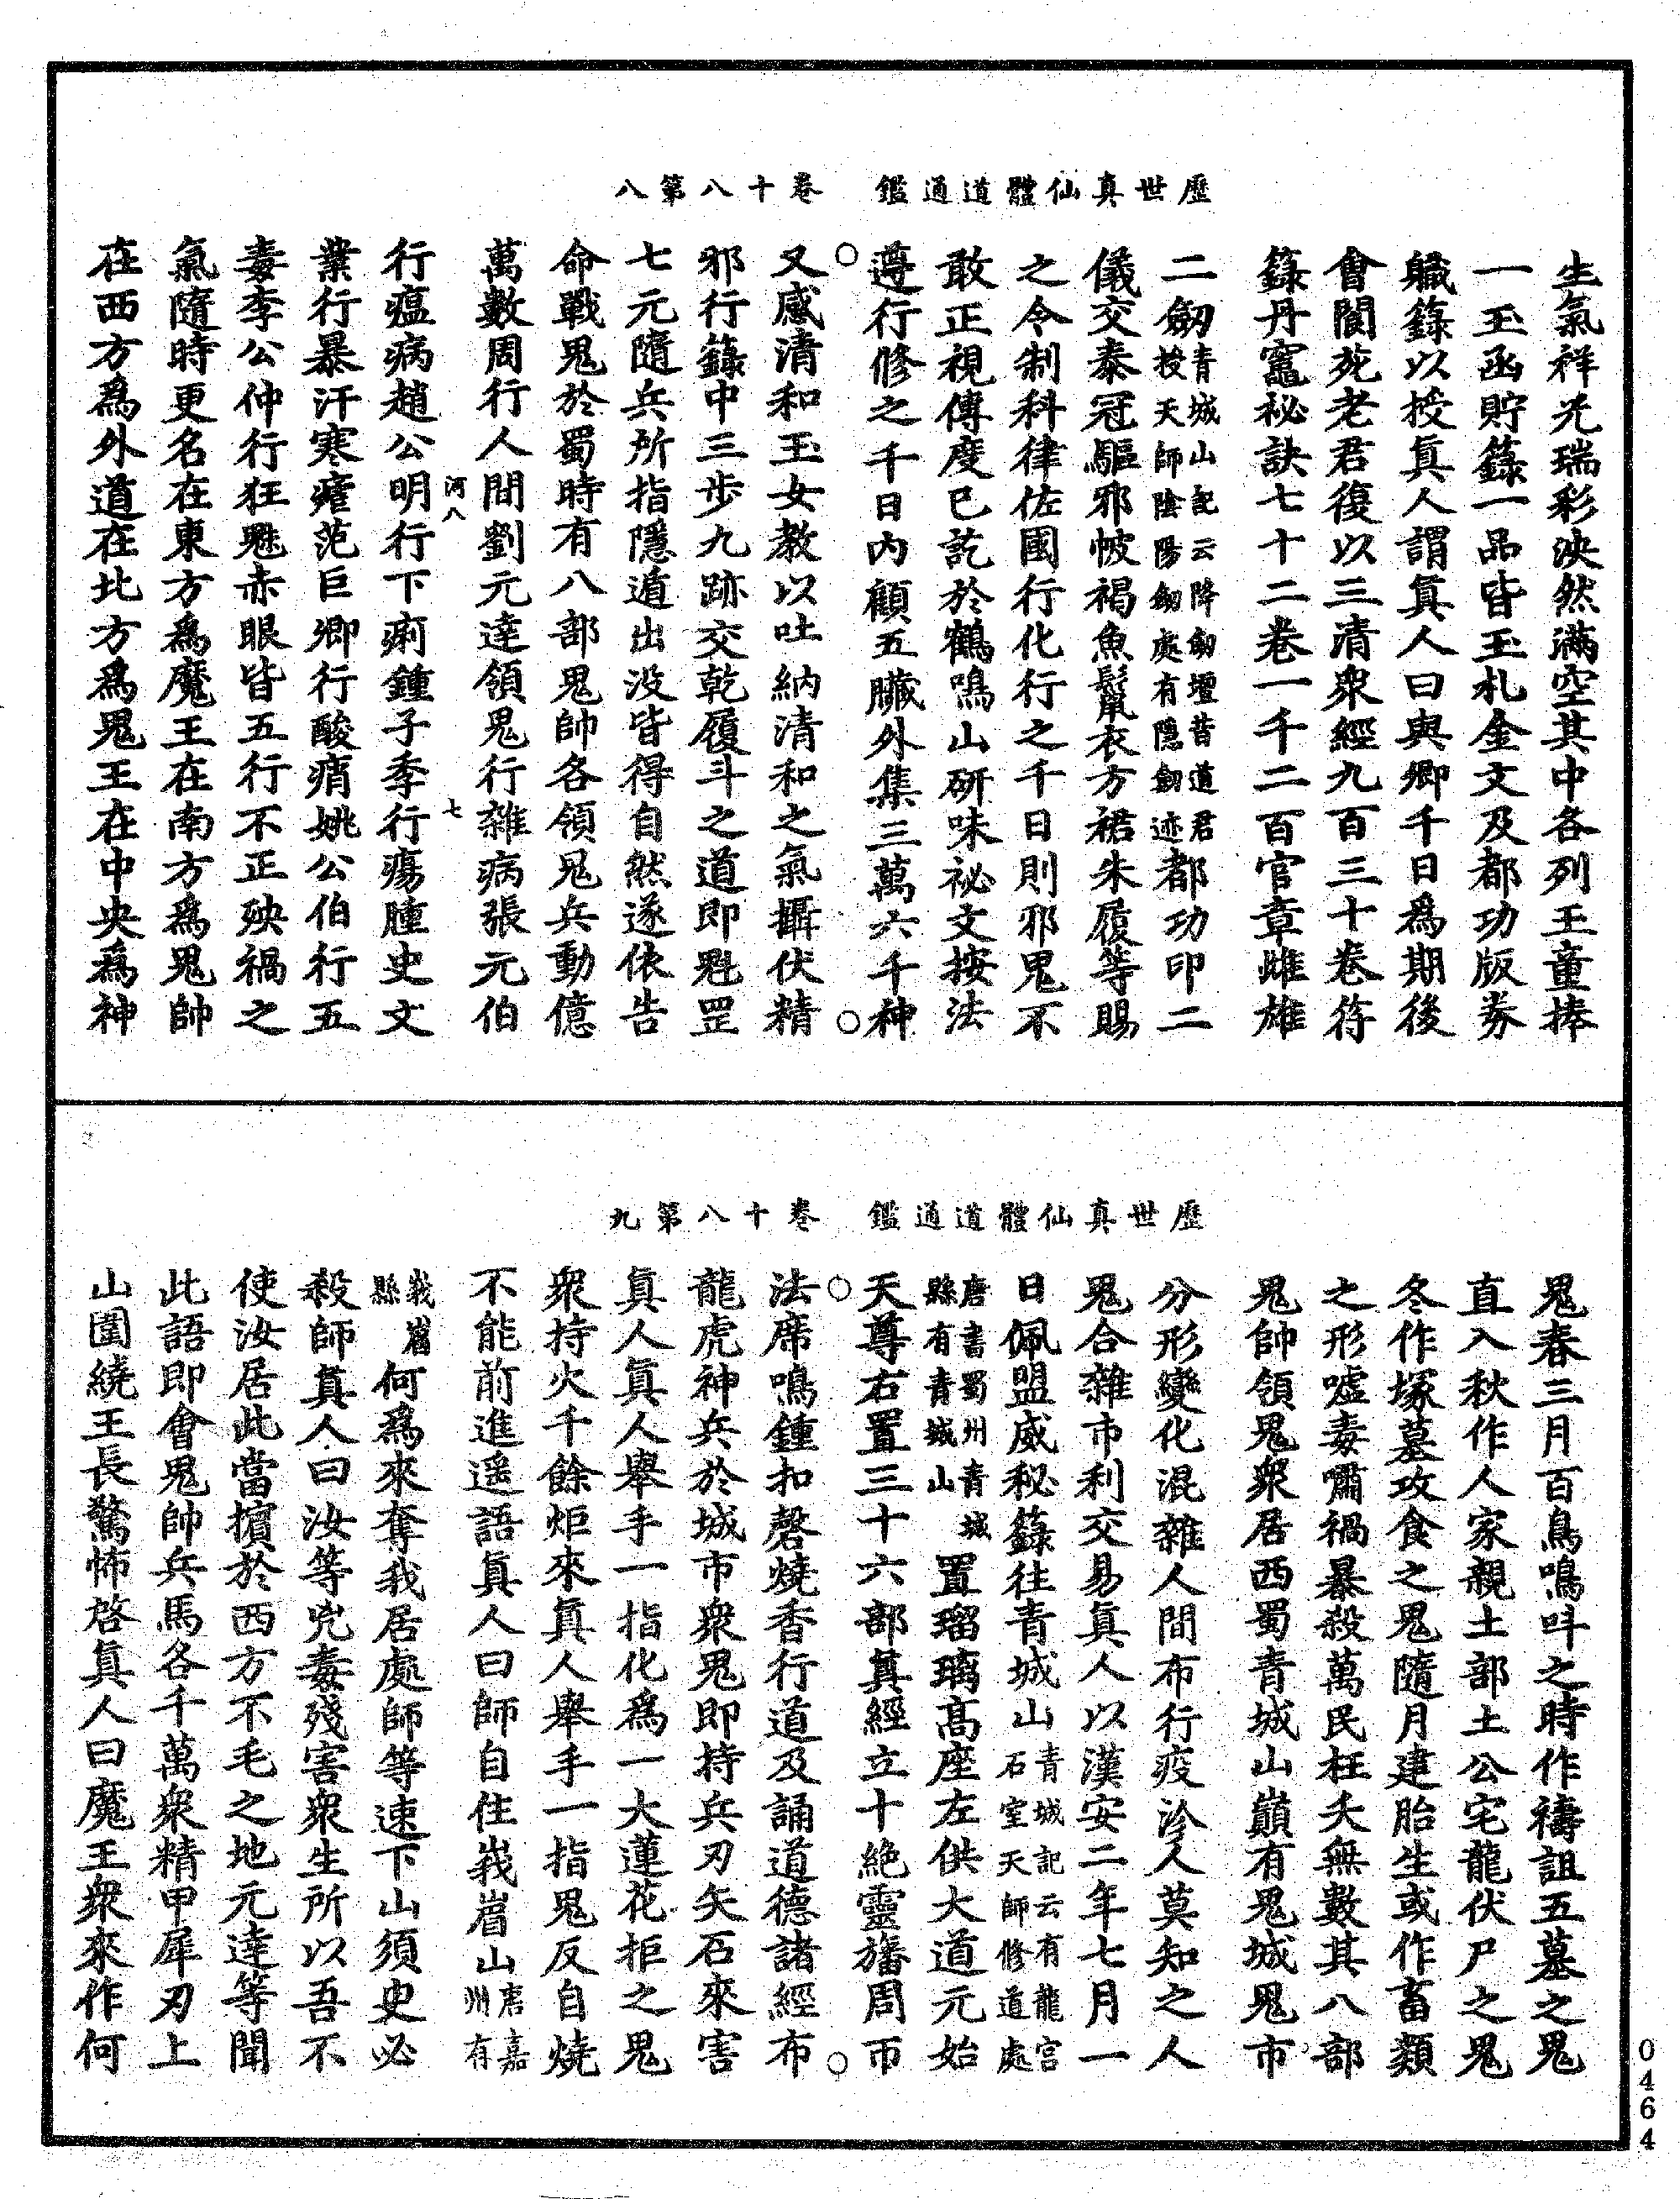 歷世真仙體道通鑑　卷十八第八
生氣祥光瑞彩泱然滿空其中各列玉童捧
一玉函貯籙一品皆玉札金文及都功版券
職籙以授真人謂真人曰與卿千日為期後
會閬苑老君復以三清衆經九百三十卷符
籙丹竈祕訣七十二卷一千二百官章雌雄
二劒青城山記云降劒壇昔道君授天師陰陽劒處有隱劒迹都功印二
儀交泰冠驅邪帔褐魚鬣衣方裙朱履等賜
之令制科律佐國行化行之千日則邪鬼不
敢正視傳度已訖於鶴鳴山研味祕文按法
遵行修之千日內顧五臟外集三萬六千神
又感清和玉女教以吐納清和之氣攝伏精
邪行籙中三步九跡交乾履斗之道即魁罡
七元隨兵所指隱遁出沒皆得自然遂依告
命戰鬼於蜀時有八部鬼帥各領鬼兵動億
萬數周行人間劉元達領鬼行雜病張元伯
行瘟病趙公明行下痢鍾子季行瘍腫史文
河八　七
業行暴汗寒瘧范巨卿行酸痟姚公伯行五
毒李公仲行狂魅赤眼皆五行不正殃禍之
氣隨時更名在東方為魔王在南方為鬼帥
在西方為外道在北方為鬼王在中央為神
歷世真仙體道通鑑　卷十八第九
鬼春三月百鳥鳴呌之時作禱詛五墓之鬼
直入秋作人家親土部土公宅龍伏尸之鬼
冬作塚墓攻食之鬼隨月建胎生或作畜類
之形噓毒嘯禍暴殺萬民枉夭無數其八部
鬼帥領鬼衆居西蜀青城山巔有鬼城鬼市
分形變化混雜人間布行疫沴人莫知之人
鬼合雜市利交易真人以漢安二年七月一
日佩盟威秘籙往青城山青城記云有龍宮石室天師修道處
唐書蜀州青城縣有青城山置瑠璃高座左供大道元始
天尊右置三十六部真經立十絕靈旛周帀
法席鳴鍾扣磬燒香行道及誦道德諸經布
龍虎神兵於城市衆鬼即持兵刃矢石來害
真人真人舉手一指化為一大蓮花拒之鬼
衆持火千餘炬來真人舉手一指鬼反自燒
不能前進遥語真人曰師自住峩嵋山唐嘉州有
峩嵋縣何為來奪我居處師等速下山須臾必
殺師真人曰汝等兇毒殘害衆生所以吾不
使汝居此當擯於西方不毛之地元達等聞
此語即會鬼帥兵馬各千萬衆精甲犀刃上
山圍繞王長驚怖啓真人曰魔王衆來作何
0464